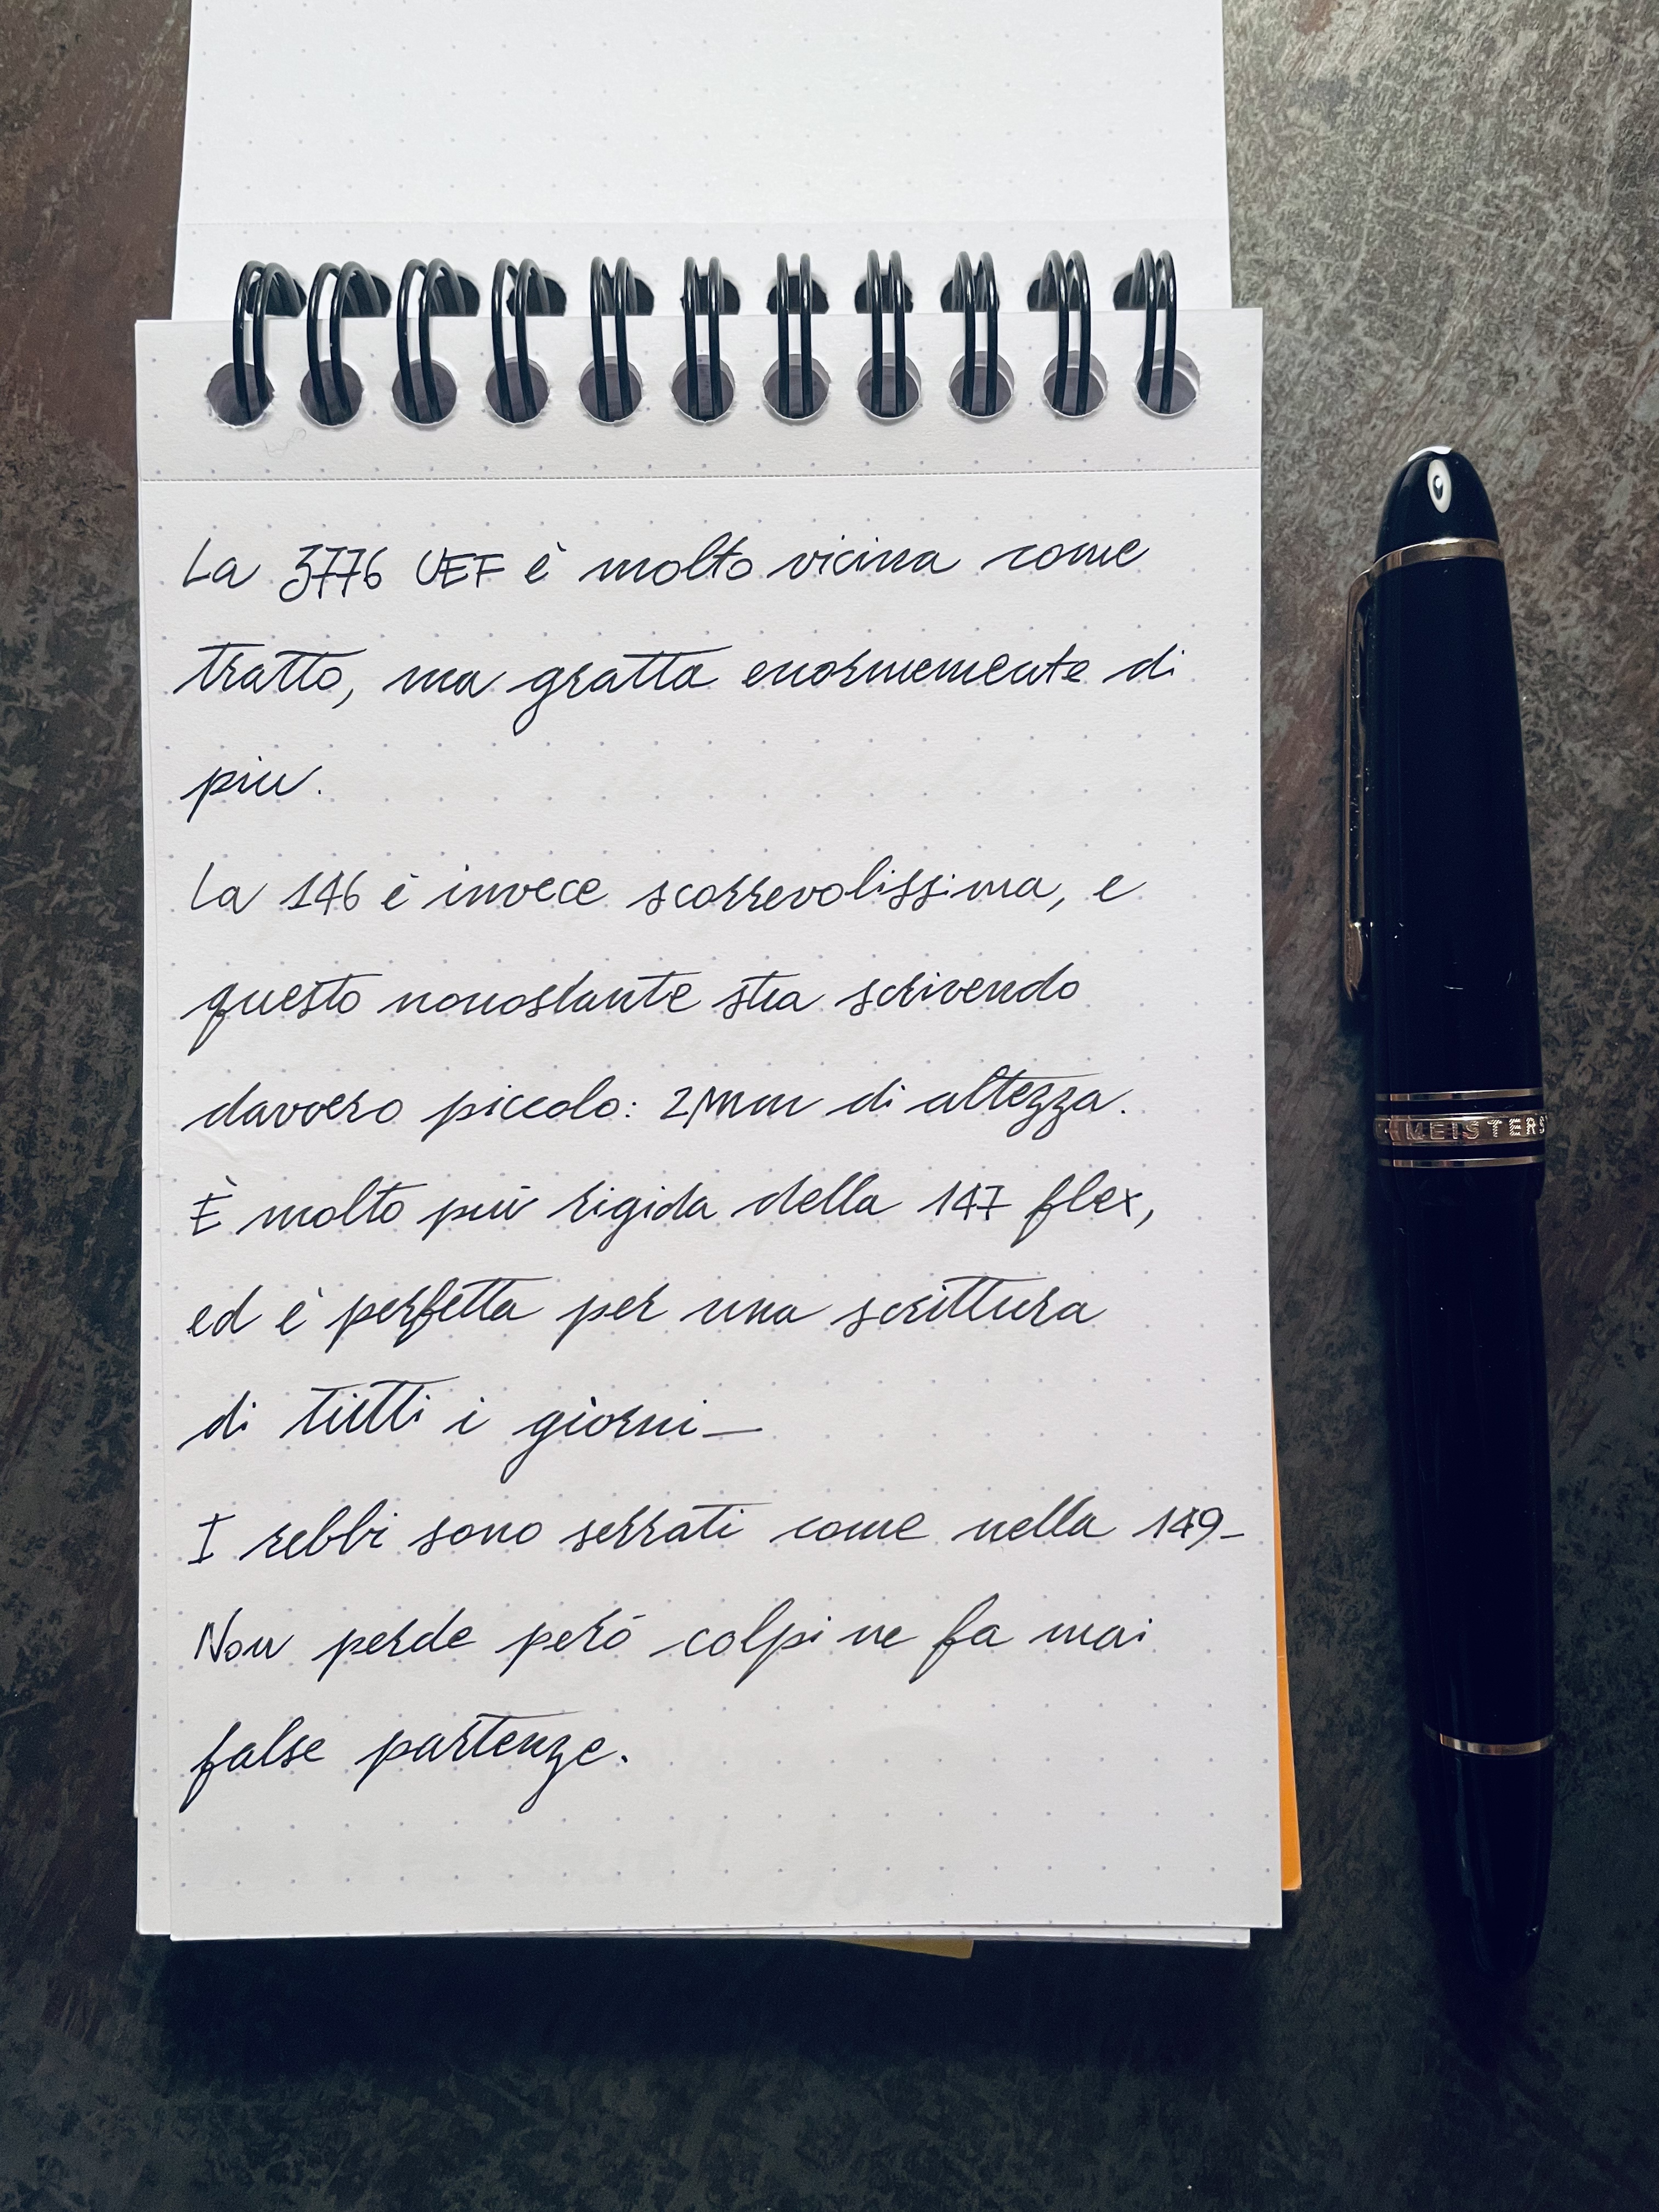 La 3776 UEF è molto vicina come
tratto, ma gratta enormemente di
piu.
La 146 è invece scorrevolissima, e
questo nonostante stia scrivendo
davvero piccolo: 2mm di altezza.
È molto più rigida della 147 flex,
ed è perfetta per una scrittura
di tutti i giorni_
I rebbi sono serrati come nella 149_
Non perde però colpi ne fa mai
false partenze.
MEISTERS